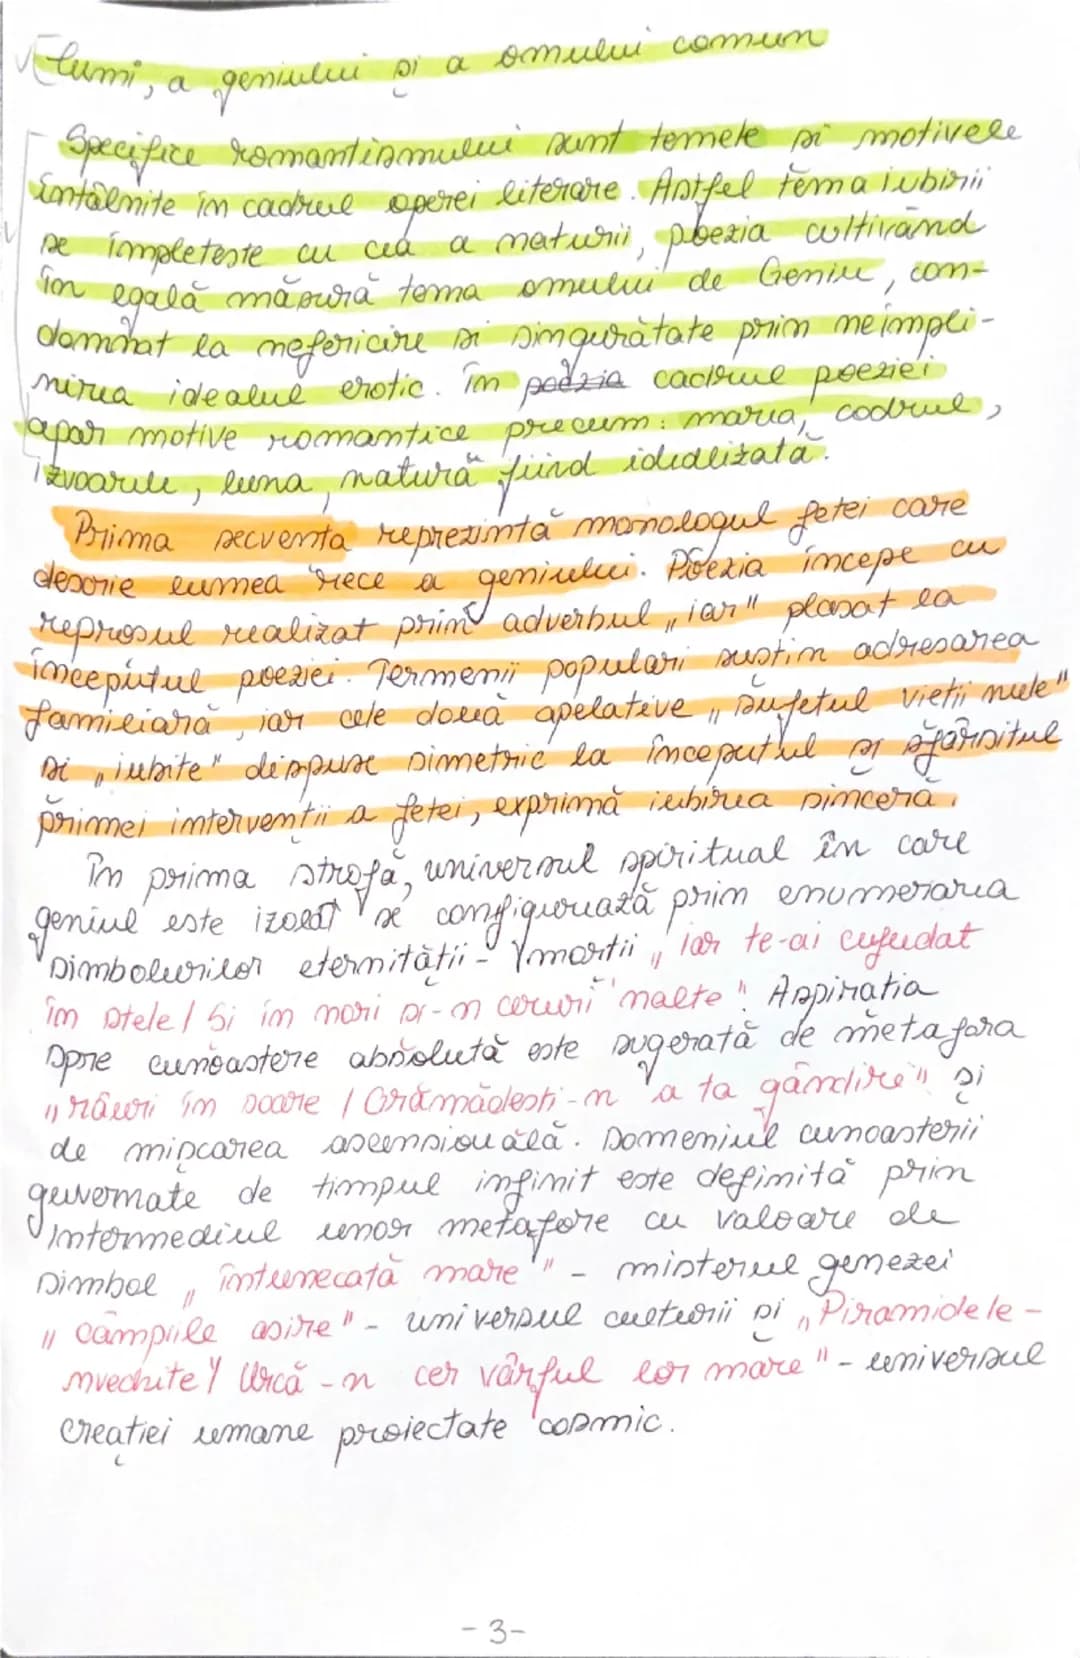 lumi, a geniului și a omului comun
Specifice romantismului sunt temele și motivele
întâlnite în cadrul operei literare. Astfel tema iubirii
se împletește cu cea a naturii, poezia cultivând
în egală măsură tema omului de Geniu, con-
damnat la nefericire și singurătate prin neîmpli-
nirea idealul erotic. În poezia cadrul poeziei
apar motive romantice precum: marea, codrul,
izvoarele, luna, natură fiind idealizată.
Prima secvență reprezintă monologul fetei care
descrie lumea rece a geniului. Poezia începe cu
reproșul realizat prin adverbul „iar" plasat la
începutul poeziei. Termenii populari susțin adresarea
familiară, iar cele două apelative „sufletul vieții mele"
și „iubite" dispuse simetric la începutul și sfârșitul
primei intervenții a fetei, exprimă iubirea sinceră.
În prima strofă, universul spiritual în care
geniul este izolat se configurează prin enumerarea
simbolurilor eternității - morții „iar te-ai cufundat
în stele / Și în nori și-n ceruri 'nalte". Aspirația
spre cunoaștere absolută este sugerată de metafora
„râuri în soare / Grămădești-n a ta gândire" și
de mișcarea ascensională. Domeniul cunoașterii
guvernate de timpul infinit este definită prin
intermediul unor metafore cu valoare de
simbol „întunecată mare" - misterul genezei
„câmpiile asire" - universul culturii și „Piramidele-
nvechite / Urcă-n cer vârful lor mare" - universul
creației umane proiectate cosmic.
- 3 -